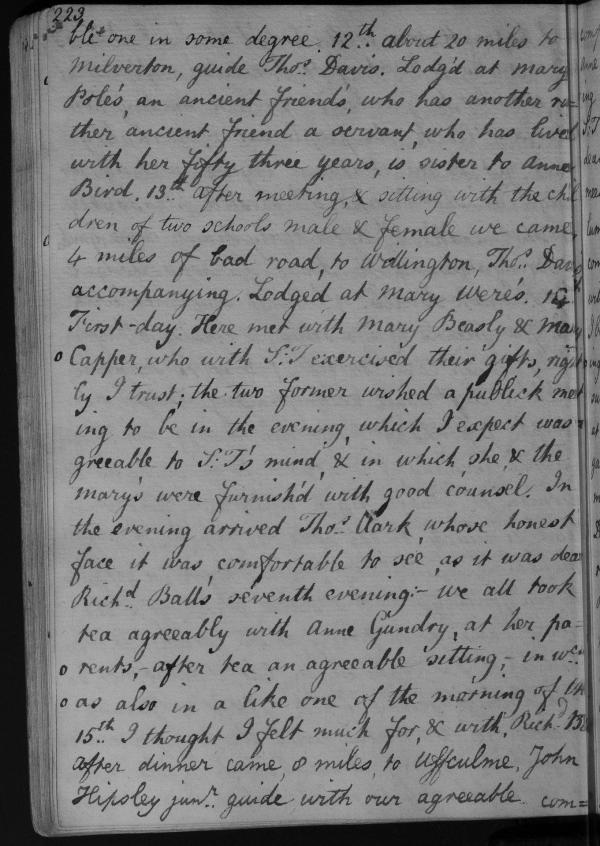 223
ble one in some degree. 12.th about 20 miles to
Milverton, guide Tho.s Davis. Lodg'd at Mary
Pole's an ancient friend's, who has another ra=
ther ancient friend a servant, who has lived
with her fifty three years, is sister to Anne
Bird. 13.th after meeting, & sitting with the chil
dren of two schools male & female we came
4 miles of bad road, to Wellington, Tho.s Davis
accompanying. Lodged at Mary Were's. 14
First-day. Here met with Mary Beasly & Mary
Capper, who with S:T exercised their gifts, right
ly I trust; the two former wished a publick meet
ing to be in the evening, which I expect was a=
greeable to S:T's mind, & in which, she, & the
Mary's were furnish'd with good counsel. In
the evening arrived Tho.s Clark, whose honest
face it was comfortable to see, as it was dear
Rich.d Ball's seventh evening:- we all took
tea agreeably with Anne Gundry, at her pa-
rents,- after tea an agreeable sitting,- in w.ch
as also in a like one of the morning of the
15.th I thought I felt much for, & with, Rich.d
after dinner came, 8 miles, to Uffculme, John
Hipsley jun.r guide with our agreeable com=